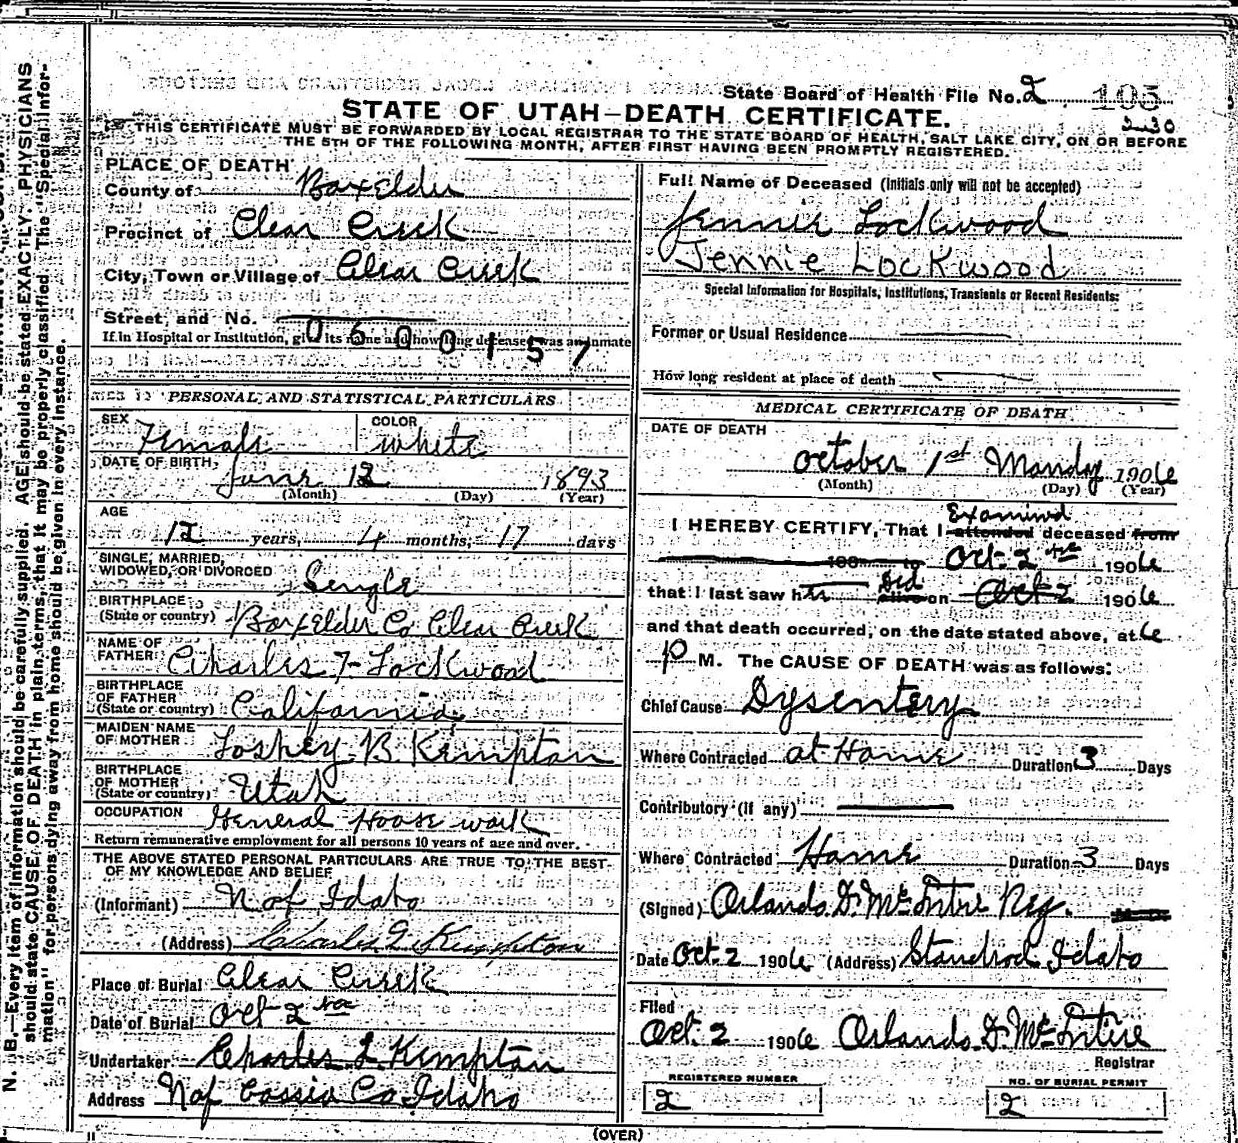 State Board of Health File No. 2 105
230
STATE OF UTAH—DEATH CERTIFICATE.
THIS CERTIFICATE MUST BE FORWARDED BY LOCAL REGISTRAR TO THE STATE BOARD OF HEALTH, SALT LAKE CITY, ON OR BEFORE
THE 5TH OF THE FOLLOWING MONTH, AFTER FIRST HAVING BEEN PROMPTLY REGISTERED.
PLACE OF DEATH
County of Boxelder
Precinct of Clear Creek
City, Town or Village of Clear Creek
Street and No.
0600157
If in Hospital or Institution, give its name and how long deceased was an inmate
PERSONAL AND STATISTICAL PARTICULARS
SEX Female COLOR white
DATE OF BIRTH June 12 1893
(Month) (Day) (Year)
AGE
12 years, 4 months, 17 days
SINGLE, MARRIED,
WIDOWED, OR DIVORCED Single
BIRTHPLACE
(State or country) Boxelder Co Clear Creek
NAME OF
FATHER Charles F Lockwood
BIRTHPLACE
OF FATHER
(State or country) California
MAIDEN NAME
OF MOTHER B. Kempton
BIRTHPLACE
OF MOTHER
(State or country) Utah
OCCUPATION General House work
Return remunerative employment for all persons 10 years of age and over.
THE ABOVE STATED PERSONAL PARTICULARS ARE TRUE TO THE BEST
OF MY KNOWLEDGE AND BELIEF
(Informant) Naf Idaho
(Address) Charles I Kempton
Place of Burial Clear Creek
Date of Burial Oct 2
Undertaker Charles I Kempton
Address Naf Cassia Co Idaho
Full Name of Deceased (Initials only will not be accepted)
Jennie Lockwood
Jennie Lockwood
Special Information for Hospitals, Institutions, Transients or Recent Residents:
Former or Usual Residence
How long resident at place of death
MEDICAL CERTIFICATE OF DEATH
DATE OF DEATH
October 1st Monday 1906
(Month) (Day) (Year)
Examined
I HEREBY CERTIFY, That I attended deceased from
190 to Oct. 2 1906
that I last saw her alive on Oct 2 1906
and that death occurred, on the date stated above, at 6
P M. The CAUSE OF DEATH was as follows:
Chief Cause Dysentery
Where Contracted at Home Duration 3 Days
Contributory (if any)
Where Contracted Home Duration 3 Days
(Signed) Orlando F. McIntire Reg.
Date Oct. 2 1906 (Address) Standrod Idaho
Filed
Oct. 2 1906 Orlando F. McIntire
Registrar
REGISTERED NUMBER NO. OF BURIAL PERMIT
2 2
(OVER)
N. B.—Every item of information should be carefully supplied. AGE should be stated EXACTLY. PHYSICIANS
should state CAUSE OF DEATH in plain terms, that it may be properly classified. The "Special Infor-
mation" for persons dying away from home should be given in every instance.